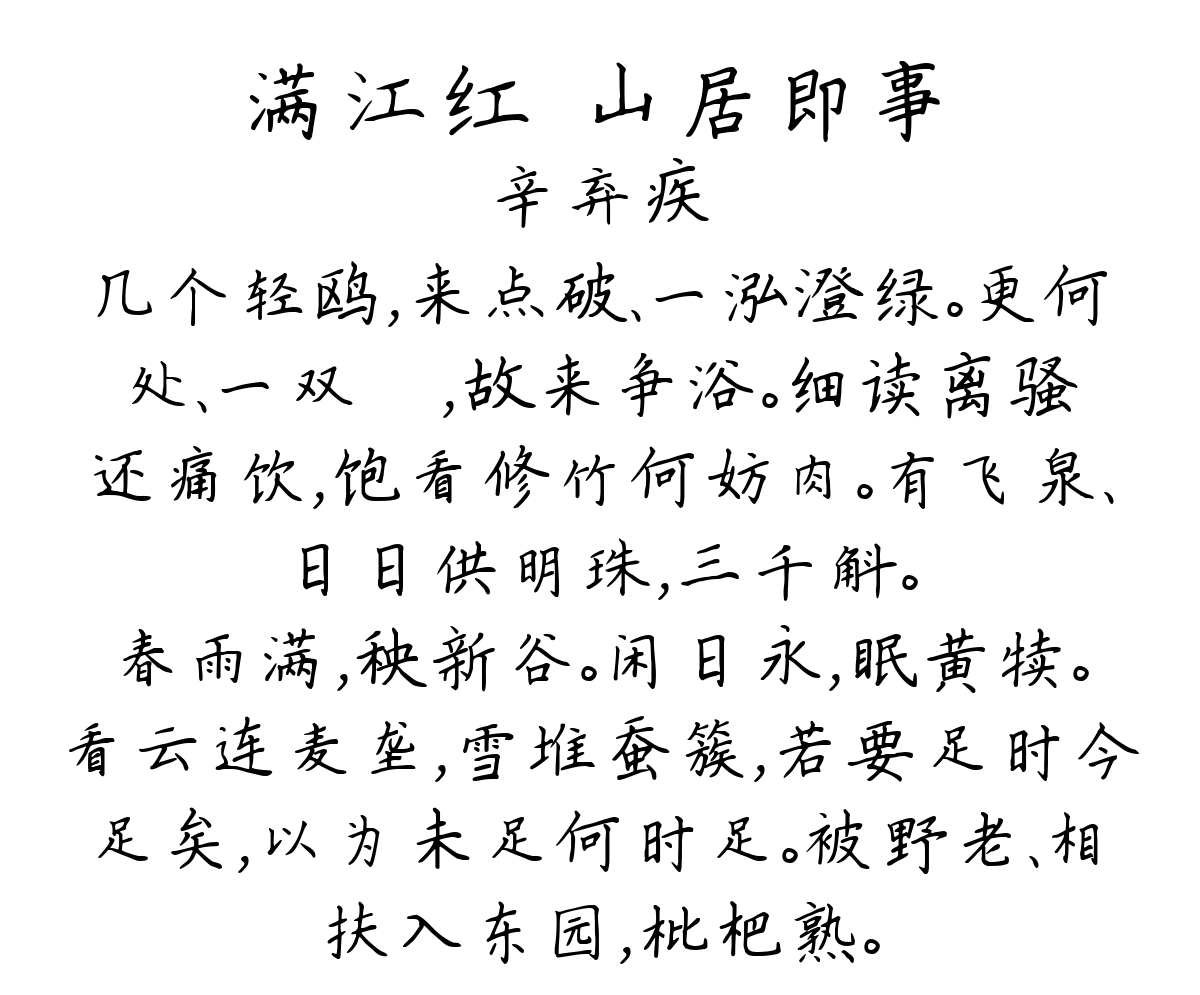 满江红 山居即事
辛弃疾
几个轻鸥,来点破、一泓澄绿。更何
处、一双 ,故来争浴。细读离骚
还痛饮,饱看修竹何妨肉。有飞泉、
日日供明珠,三千斛。
春雨满,秧新谷。闲日永,眠黄犊。
看云连麦垄,雪堆蚕簇,若要足时今
足矣,以为未足何时足。被野老、相
扶入东园,枇杷熟。